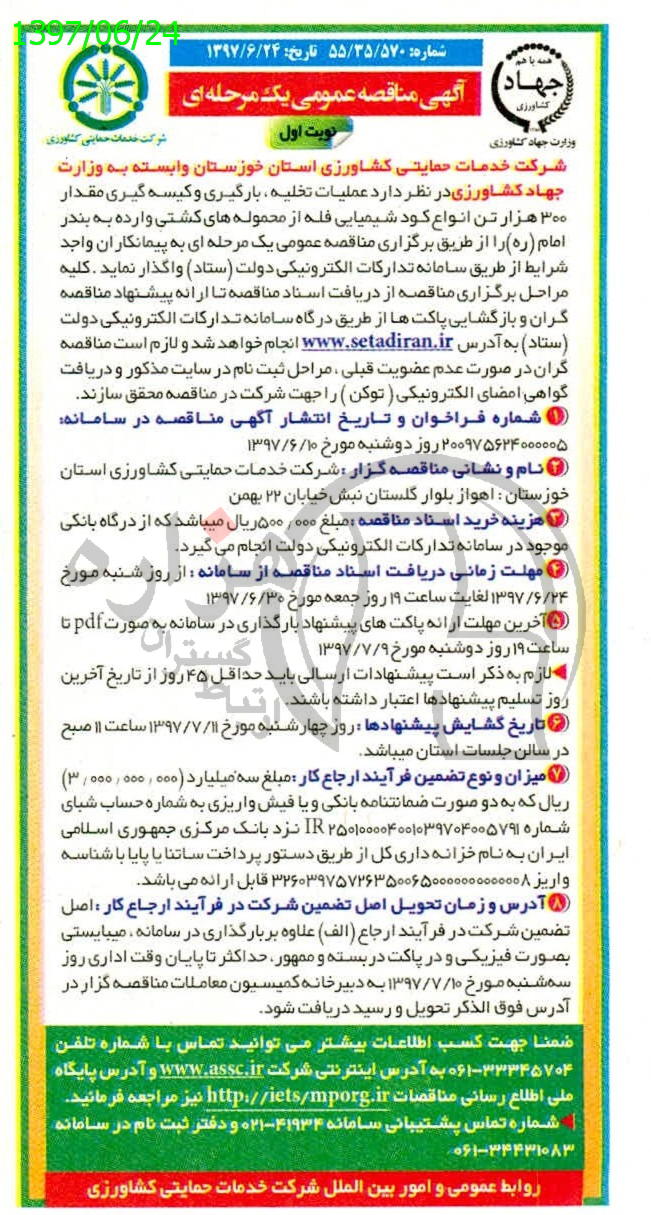 1397/06/24
شماره: ۵۵/۳۵/۵۷۰ تاریخ: ۱۳۹۷/۶/۲۴
آگهی مناقصه عمومی یک مرحله ای
نوبت اول
همه با هم
جهاد
کشاورزی
وزارت جهاد کشاورزی
شرکت خدمات حمایتی کشاورزی
شرکت خدمات حمایتی کشاورزی استان خوزستان وابسته به وزارت
جهاد کشاورزی در نظر دارد عملیات تخلیه ، بارگیری و کیسه گیری مقدار
۳۰۰ هزار تن انواع کود شیمیایی فله از محموله های کشتی وارده به بندر
امام (ره) را از طریق برگزاری مناقصه عمومی یک مرحله ای به پیمانکاران واجد
شرایط از طریق سامانه تدارکات الکترونیکی دولت (ستاد) واگذار نماید . کلیه
مراحل برگزاری مناقصه از دریافت اسناد مناقصه تا ارائه پیشنهاد مناقصه
گران و بازگشایی پاکت ها از طریق درگاه سامانه تدارکات الکترونیکی دولت
(ستاد) به آدرس www.setadiran.ir انجام خواهد شد و لازم است مناقصه
گران در صورت عدم عضویت قبلی ، مراحل ثبت نام در سایت مذکور و دریافت
گواهی امضای الکترونیکی ( توکن ) را جهت شرکت در مناقصه محقق سازند.
۱ شماره فراخوان و تاریخ انتشار آگهی مناقصه در سامانه:
۲۰۰۹۷۵۶۲۴۰۰۰۰۰۵ روز دوشنبه مورخ ۱۳۹۷/۶/۱۰
۲ نام و نشانی مناقصه گزار : شرکت خدمات حمایتی کشاورزی استان
خوزستان : اهواز بلوار گلستان نبش خیابان ۲۲ بهمن
۳ هزینه خرید اسناد مناقصه : مبلغ ۵۰۰,۰۰۰ ریال میباشد که از درگاه بانکی
موجود در سامانه تدارکات الکترونیکی دولت انجام می گیرد.
۴ مهلت زمانی دریافت اسناد مناقصه از سامانه : از روز شنبه مورخ
۱۳۹۷/۶/۲۴ لغایت ساعت ۱۹ روز جمعه مورخ ۱۳۹۷/۶/۳۰
۵ آخرین مهلت ارائه پاکت های پیشنهاد بارگذاری در سامانه به صورت pdf تا
ساعت ۱۹ روز دوشنبه مورخ ۱۳۹۷/۷/۹
لازم به ذکر است پیشنهادات ارسالی باید حداقل ۴۵ روز از تاریخ آخرین
روز تسلیم پیشنهادها اعتبار داشته باشند.
۶ تاریخ گشایش پیشنهادها : روز چهارشنبه مورخ ۱۳۹۷/۷/۱۱ ساعت ۱۱ صبح
در سالن جلسات استان میباشد.
۷ میزان و نوع تضمین فرآیند ارجاع کار : مبلغ سه میلیارد (۳,۰۰۰,۰۰۰,۰۰۰)
ریال که به دو صورت ضمانتنامه بانکی و یا فیش واریزی به شماره حساب شبای
شماره IR ۲۵۰۱۰۰۰۰۴۰۰۱۰۳۹۷۰۴۰۰۵۷۹۱ نزد بانک مرکزی جمهوری اسلامی
ایران به نام خزانه داری کل از طریق دستور پرداخت ساتنا یا پایا با شناسه
واریز قابل ارائه می باشد.
۸ آدرس و زمان تحویل اصل تضمین شرکت در فرآیند ارجاع کار : اصل
تضمین شرکت در فرآیند ارجاع (الف) علاوه بر بارگذاری در سامانه ، میبایستی
بصورت فیزیکی و در پاکت در بسته و ممهور، حداکثر تا پایان وقت اداری روز
سه شنبه مورخ ۱۳۹۷/۷/۱۰ به دبیرخانه کمیسیون معاملات مناقصه گزار در
آدرس فوق الذکر تحویل و رسید دریافت شود.
ضمنا جهت کسب اطلاعات بیشتر می توانید تماس با شماره تلفن
۰۶۱-۳۳۳۴۵۷۰۴ به آدرس اینترنتی شرکت www.assc.ir و آدرس پایگاه
ملی اطلاع رسانی مناقصات http://iets/mporg.ir نیز مراجعه فرمائید.
شماره تماس پشتیبانی سامانه ۴۱۹۳۴-۰۲۱ و دفتر ثبت نام در سامانه
۰۶۱-۳۴۴۳۱۰۸۳
روابط عمومی و امور بین الملل شرکت خدمات حمایتی کشاورزی
هزاره
گستران
ارتباط